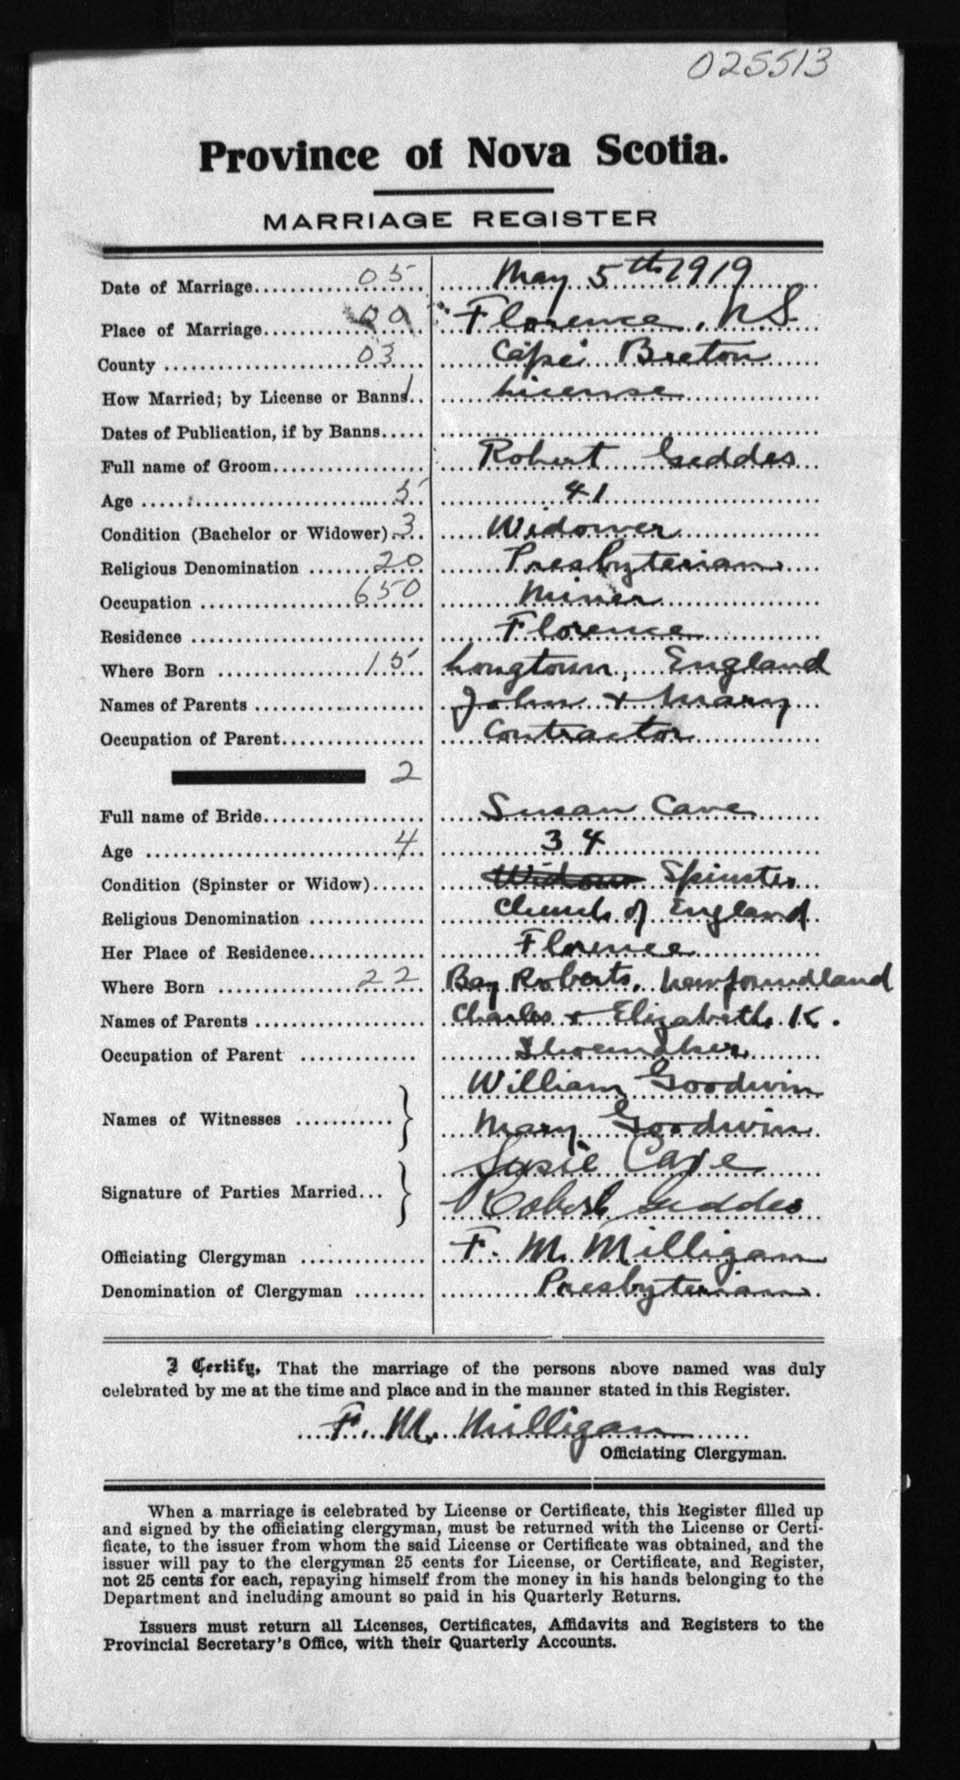 025513
Province of Nova Scotia.
MARRIAGE REGISTER
Date of Marriage 05 May 5th 1919
Place of Marriage 00 Florence, N.S.
County 03 Cape Breton
How Married; by License or Banns 1 License
Dates of Publication, if by Banns
Full name of Groom Robert Geddes
Age 5 41
Condition (Bachelor or Widower) 3 Widower
Religious Denomination 20 Presbyterian
Occupation 650 Miner
Residence Florence
Where Born 15 Longtown, England
Names of Parents John + Mary
Occupation of Parent Contractor
2
Full name of Bride Susan Cave
Age 4 34
Condition (Spinster or Widow) Widow Spinster
Religious Denomination Church of England
Her Place of Residence Florence
Where Born 22 Bay Roberts, Newfoundland
Names of Parents Charles + Elizabeth K.
Occupation of Parent Shoemaker
William Goodwin
Names of Witnesses
Mary Goodwin
Susie Cave
Signature of Parties Married...
Robert Geddes
Officiating Clergyman F. M. Milligan
Denomination of Clergyman Presbyterian
I Certify, That the marriage of the persons above named was duly
celebrated by me at the time and place and in the manner stated in this Register.
F. M. Milligan
Officiating Clergyman.
When a marriage is celebrated by License or Certificate, this Register filled up
and signed by the officiating clergyman, must be returned with the License or Certi-
ficate, to the issuer from whom the said License or Certificate was obtained, and the
issuer will pay to the clergyman 25 cents for License, or Certificate, and Register,
not 25 cents for each, repaying himself from the money in his hands belonging to the
Department and including amount so paid in his Quarterly Returns.
Issuers must return all Licenses, Certificates, Affidavits and Registers to the
Provincial Secretary's Office, with their Quarterly Accounts.